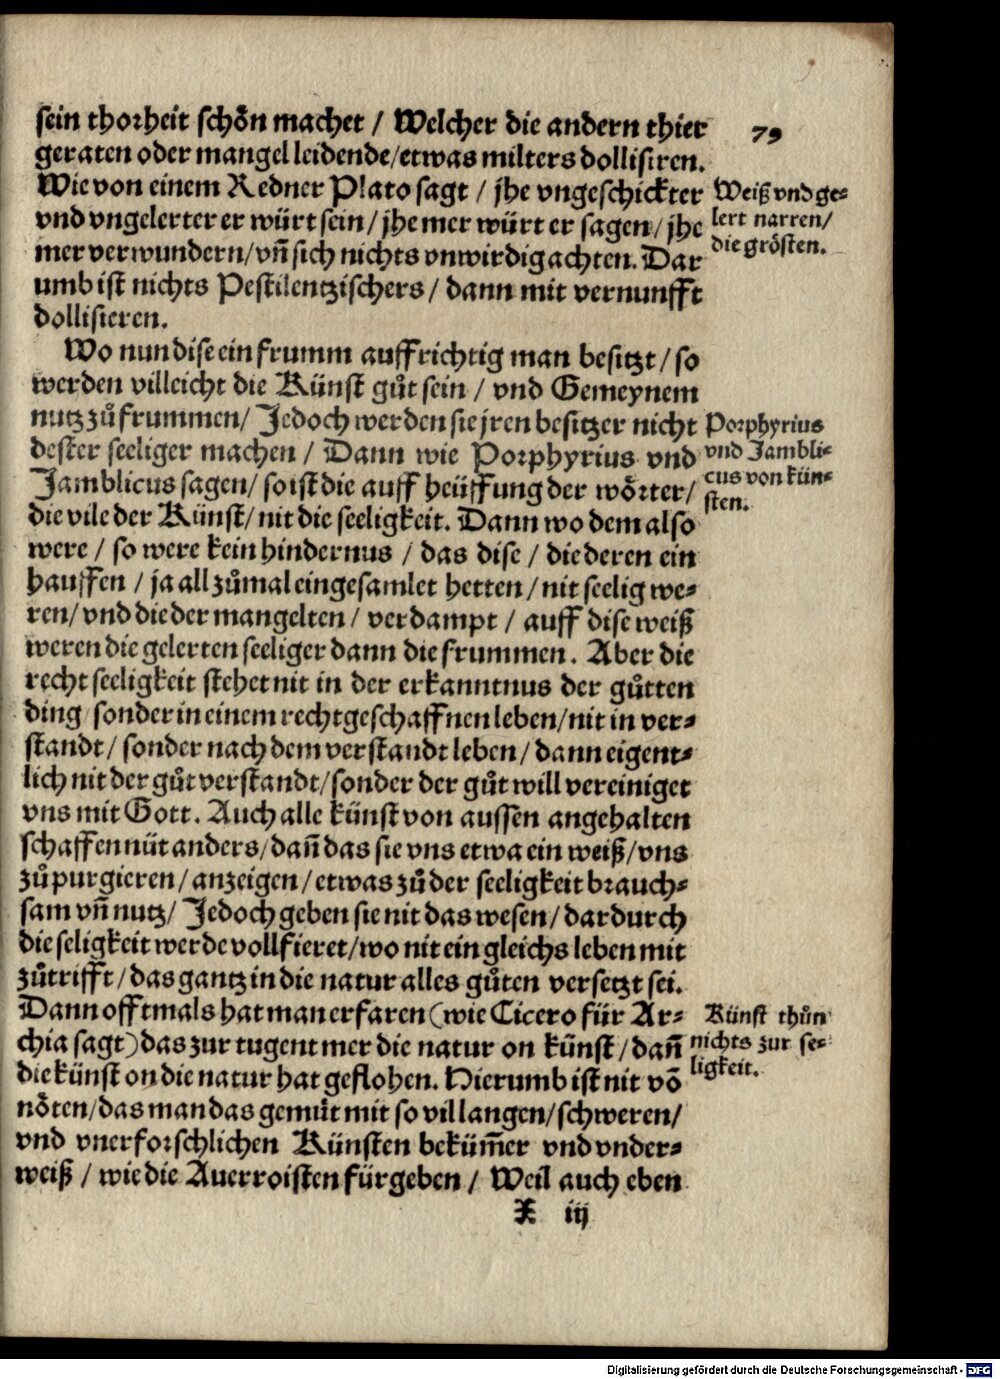 79
sein thorheit schoͤn machet / Welcher die andern thier
geraten oder mangel leidende/etwas milters dollisiren.
Wie von einem Redner Plato sagt / jhe vngeschickter
vnd vngelerter er würt sein/jhe mer würt er sagen/jhe
mer verwundern/vnñ sich nichts vnwirdig achten. Dar
umb ist nichts Pestilentzischers/dann mit vernunfft
dollisieren.
Weiß vnd ge⸗
lert narren/
die groͤsten.
Wo nun dise ein frumm auffrichtig man besitzt/so
werden villeicht die Künst guͦt sein / vnd Gemeynem
nutz zuͦ frummen/Jedoch werden sie jren besitzer nicht
dester seeliger machen / Dann wie Porphyrius vnd
Jamblicus sagen/so ist die auff heüffung der woͤrter/
die vile der Künst/nit die seeligkeit. Dann wo dem also
were / so were kein hindernus / das dise / die deren ein
hauffen / ja all zuͦmal eingesamlet hetten/nit seelig we⸗
ren/vnd die der mangelten / verdampt / auff dise weiß
weren die gelerten seeliger dann die frummen. Aber die
recht seeligkeit stehet nit in der erkanntnus der guͦtten
ding/sonder in einem rechtgeschaffnen leben/nit in ver⸗
standt/sonder nach dem verstandt leben/dann eigent⸗
lich nit der guͦt verstandt/sonder der guͦt will vereiniget
vns mit Gott. Auch alle künst von aussen angehalten
schaffen nüt anders/dañ das sie vns etwa ein weiß/vns
zuͦ purgieren/anzeigen/etwas zuͦ der seeligkeit brauch⸗
sam vñ nutz/Jedoch geben sie nit das wesen/dardurch
die seligkeit werde vollfieret/wo nit ein gleichs leben mit
zuͦtrifft/das gantz in die natur alles guͦten versetzt sei.
Dann offtmals hat man erfaren (wie Cicero für Ar⸗
chia sagt) das zur tugent mer die natur on künst/dañ
die künst on die natur hat geflohen. Hierumb ist nit võ
noͤten/das man das gemuͤt mit so vil langen/schweren/
vnd vnerforschlichen Künsten bekümm̃er vnd vnder⸗
weiß / wie die Auerroisten fürgeben / Weil auch eben
Porphyrius
vnd Jambli⸗
cus von kün⸗
sten.
Künst thuͦn
nichts zur se⸗
ligkeit.
X iij
Digitalisierung gefördert durch die Deutsche Forschungsgemeinschaft - DFG